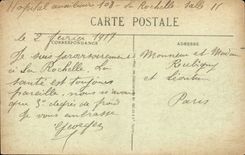 Hopital auxiliaire 108 - La Rochelle Salle 11
CARTE POSTALE
CORRESPONDANCE
ADRESSE
Le 2 février 1917
Je suis
à La Rochelle. La
santé est toujours
pareille, nous n'avons
que 5 degrés de froid
Je vous embrasse
Georges
Monsieur et
Paris